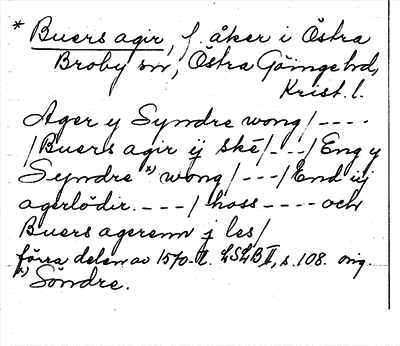 * Buers agir, f. åker i Östra
Broby sn, Östra Göinge hd,
Krist. l.
Ager y Syndre wong/----
/Buers agir ij ske/---/Eng y
Syndre x) wong/---/End iij
agerlödir.---/hoss----och
Buers agerenn j les/
förra delen av 1570-t. LSLB II, s. 108. orig.
x) Söndre.